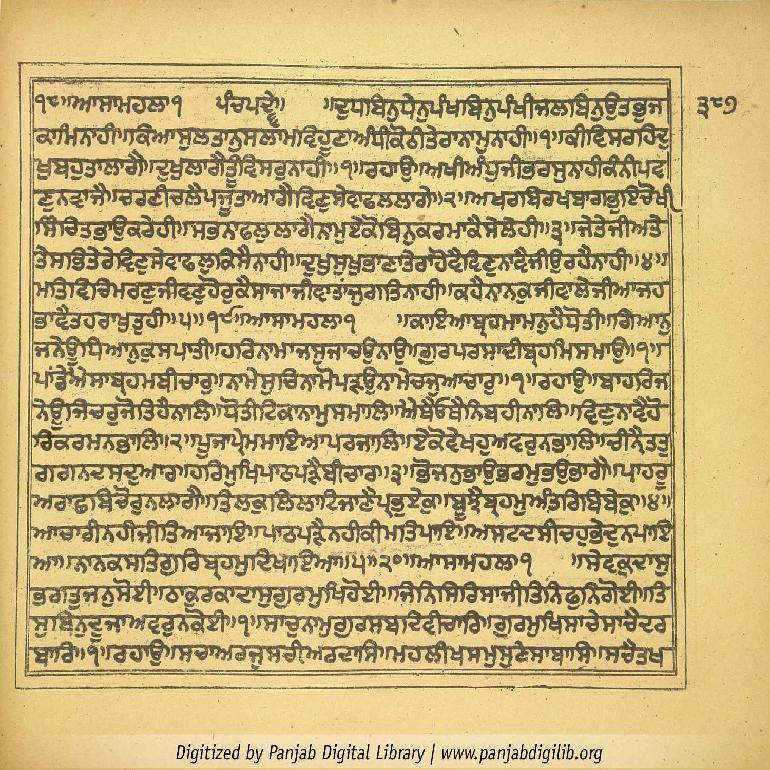 ੧੮॥ਆਸਾਮਹਲਾ੧ ਪੰਚਪਦੇ॥ ॥ਦੁਧਬਿਨੁਧੇਨੁਪੰਖਬਿਨੁਪੰਖੀਜਲਬਿਨੁਉਤਭੁਜ
ਕਾਮਿਨਾਹੀ॥ਕਿਆਸੁਲਤਾਨੁਸਲਾਮਵਿਹੂਣਾਅੰਧੀਕੋਠੀਤੇਰਾਨਾਮੁਨਾਹੀ॥੧॥ਕੀਵਿਸਰਹਿਦੁ
ਖੁਬਹੁਤਾਲਾਗੈ॥ਦੁਖੁਲਾਗੈਤੂੰਵਿਸਰੁਨਾਹੀ॥੧॥ਰਹਾਉ॥ਅਖੀਅੰਧੁਜੀਭਰਸੁਨਾਹੀਕੰਨੀਪਵ
ਣੁਨਵਾਜੈ॥ਚਰਣੀਚਲੈਪਜੂਤਾਆਗੈਵਿਣੁਸੇਵਾਫਲਲਾਗੇ॥੨॥ਅਖਰਬਿਰਖਬਾਗਭੁਇਚੋਖੀ
ਸਿੰਚਿਤਭਾਉਕਰੇਹੀ॥ਸਭਨਾਫਲੁਲਾਗੈਨਾਮੁਏਕੋਬਿਨੁਕਰਮਾਕੈਸੇਲੇਹੀ॥੩॥ਜੇਤੇਜੀਅਤੇ
ਤੇਸਭਿਤੇਰੇਵਿਣੁਸੇਵਾਫਲੁਕਿਸੈਨਾਹੀ॥ਦੁਖੁਸੁਖੁਭਾਣਾਤੇਰਾਹੋਵੈਵਿਣੁਨਾਵੈਜੀਉਰਹੈਨਾਹੀ॥੪॥
ਮਤਿਵਿਚਿਮਰਣੁਜੀਵਣੁਹੋਰੁਕੈਸਾਜਾਜੀਵਾਤਾਂਜੁਗਤਿਨਾਹੀ॥ਕਹੈਨਾਨਕੁਜੀਵਾਲੇਜੀਆਜਹ
ਭਾਵੈਤਹਰਾਖੁਤੁਹੀ॥੫॥੧੯॥ਆਸਾਮਹਲਾ੧ ॥ਕਾਇਆਬ੍ਰਹਮਾਮਨੁਹੈਧੋਤੀ॥ਗਿਆਨੁ
ਜਨੇਊਧਿਆਨੁਕੁਸਪਾਤੀ॥ਹਰਿਨਾਮਾਜਸੁਜਾਚਉਨਾਉ॥ਗੁਰਪਰਸਾਦੀਬ੍ਰਹਮਿਸਮਾਉ॥੧॥
ਪਾਂਡੇਐਸਾਬ੍ਰਹਮਬੀਚਾਰੁ॥ਨਾਮੇਸੁਚਿਨਾਮੋਪੜਉਨਾਮੇਚਜੁਆਚਾਰੁ॥੧॥ਰਹਾਉ॥ਬਾਹਰਿਜ
ਨੇਊਜਿਚਰੁਜੋਤਿਹੈਨਾਲਿ॥ਧੋਤੀਟਿਕਾਨਾਮੁਸਮਾਲਿ॥ਐਥੈਓਥੈਨਿਬਹੀਨਾਲਿ॥ਵਿਣੁਨਾਵੈਹੋ
ਰਿਕਰਮਨਭਾਲਿ॥੨॥ਪੂਜਾਪ੍ਰੇਮਮਾਇਆਪਰਜਾਲਿ॥ਏਕੋਵੇਖਹੁਅਵਰੁਨਭਾਲਿ॥ਚੀਨੈਤਤੁ
ਗਗਨਦਸਦੁਆਰ॥ਹਰਿਮੁਖਿਪਾਠਪੜੈਬੀਚਾਰ॥੩॥ਭੋਜਨੁਭਾਉਭਰਮੁਭਉਭਾਗੈ॥ਪਾਹਰੂ
ਅਰਾਛਬਿਚੋਰੁਨਲਾਗੈ॥ਤਿਲਕੁਲਿਲਾਟਿਜਾਣੈਪ੍ਰਭੁਏਕੁ॥ਬੂਝੈਬ੍ਰਹਮੁਅੰਤਰਿਬਿਬੇਕੁ॥੪॥
ਆਚਾਰੀਨਹੀਜੀਤਿਆਜਾਇ॥ਪਾਠਪੜੈਨਹੀਕੀਮਤਿਪਾਇ॥ਅਸਟਦਸੀਚਹੁਭੇਦੁਨਪਾਇ
ਆ॥ਨਾਨਕਸਤਿਗੁਰਿਬ੍ਰਹਮੁਦਿਖਾਇਆ॥੫॥੨੦॥ਆਸਾਮਹਲਾ੧ ॥ਸੇਵਕੁਦਾਸੁ
ਭਗਤੁਜਨੁਸੋਈ॥ਠਾਕੁਰਕਾਦਾਸੁਗੁਰਮੁਖਿਹੋਈ॥ਜਿਨਿਸਿਰਿਸਾਜੀਤਿਨਿਫੁਨਿਗੋਈ॥ਤਿ
ਸੁਬਿਨੁਦੂਜਾਅਵਰੁਨਕੋਈ॥੧॥ਸਾਚੁਨਾਮੁਗੁਰਸਬਦਿਵੀਚਾਰਿ॥ਗੁਰਮੁਖਿਸਾਚੇਸਾਚੈਦਰ
ਬਾਰਿ॥੧॥ਰਹਾਉ॥ਸਚਾਅਰਜੁਸਚੀਅਰਦਾਸਿ॥ਮਹਲੀਖਸਮੁਸੁਣੇਸਾਬਾਸਿ॥ਸਚੈਤਖ
੩੮੭
Digitized by Panjab Digital Library | www.panjabdigilib.org